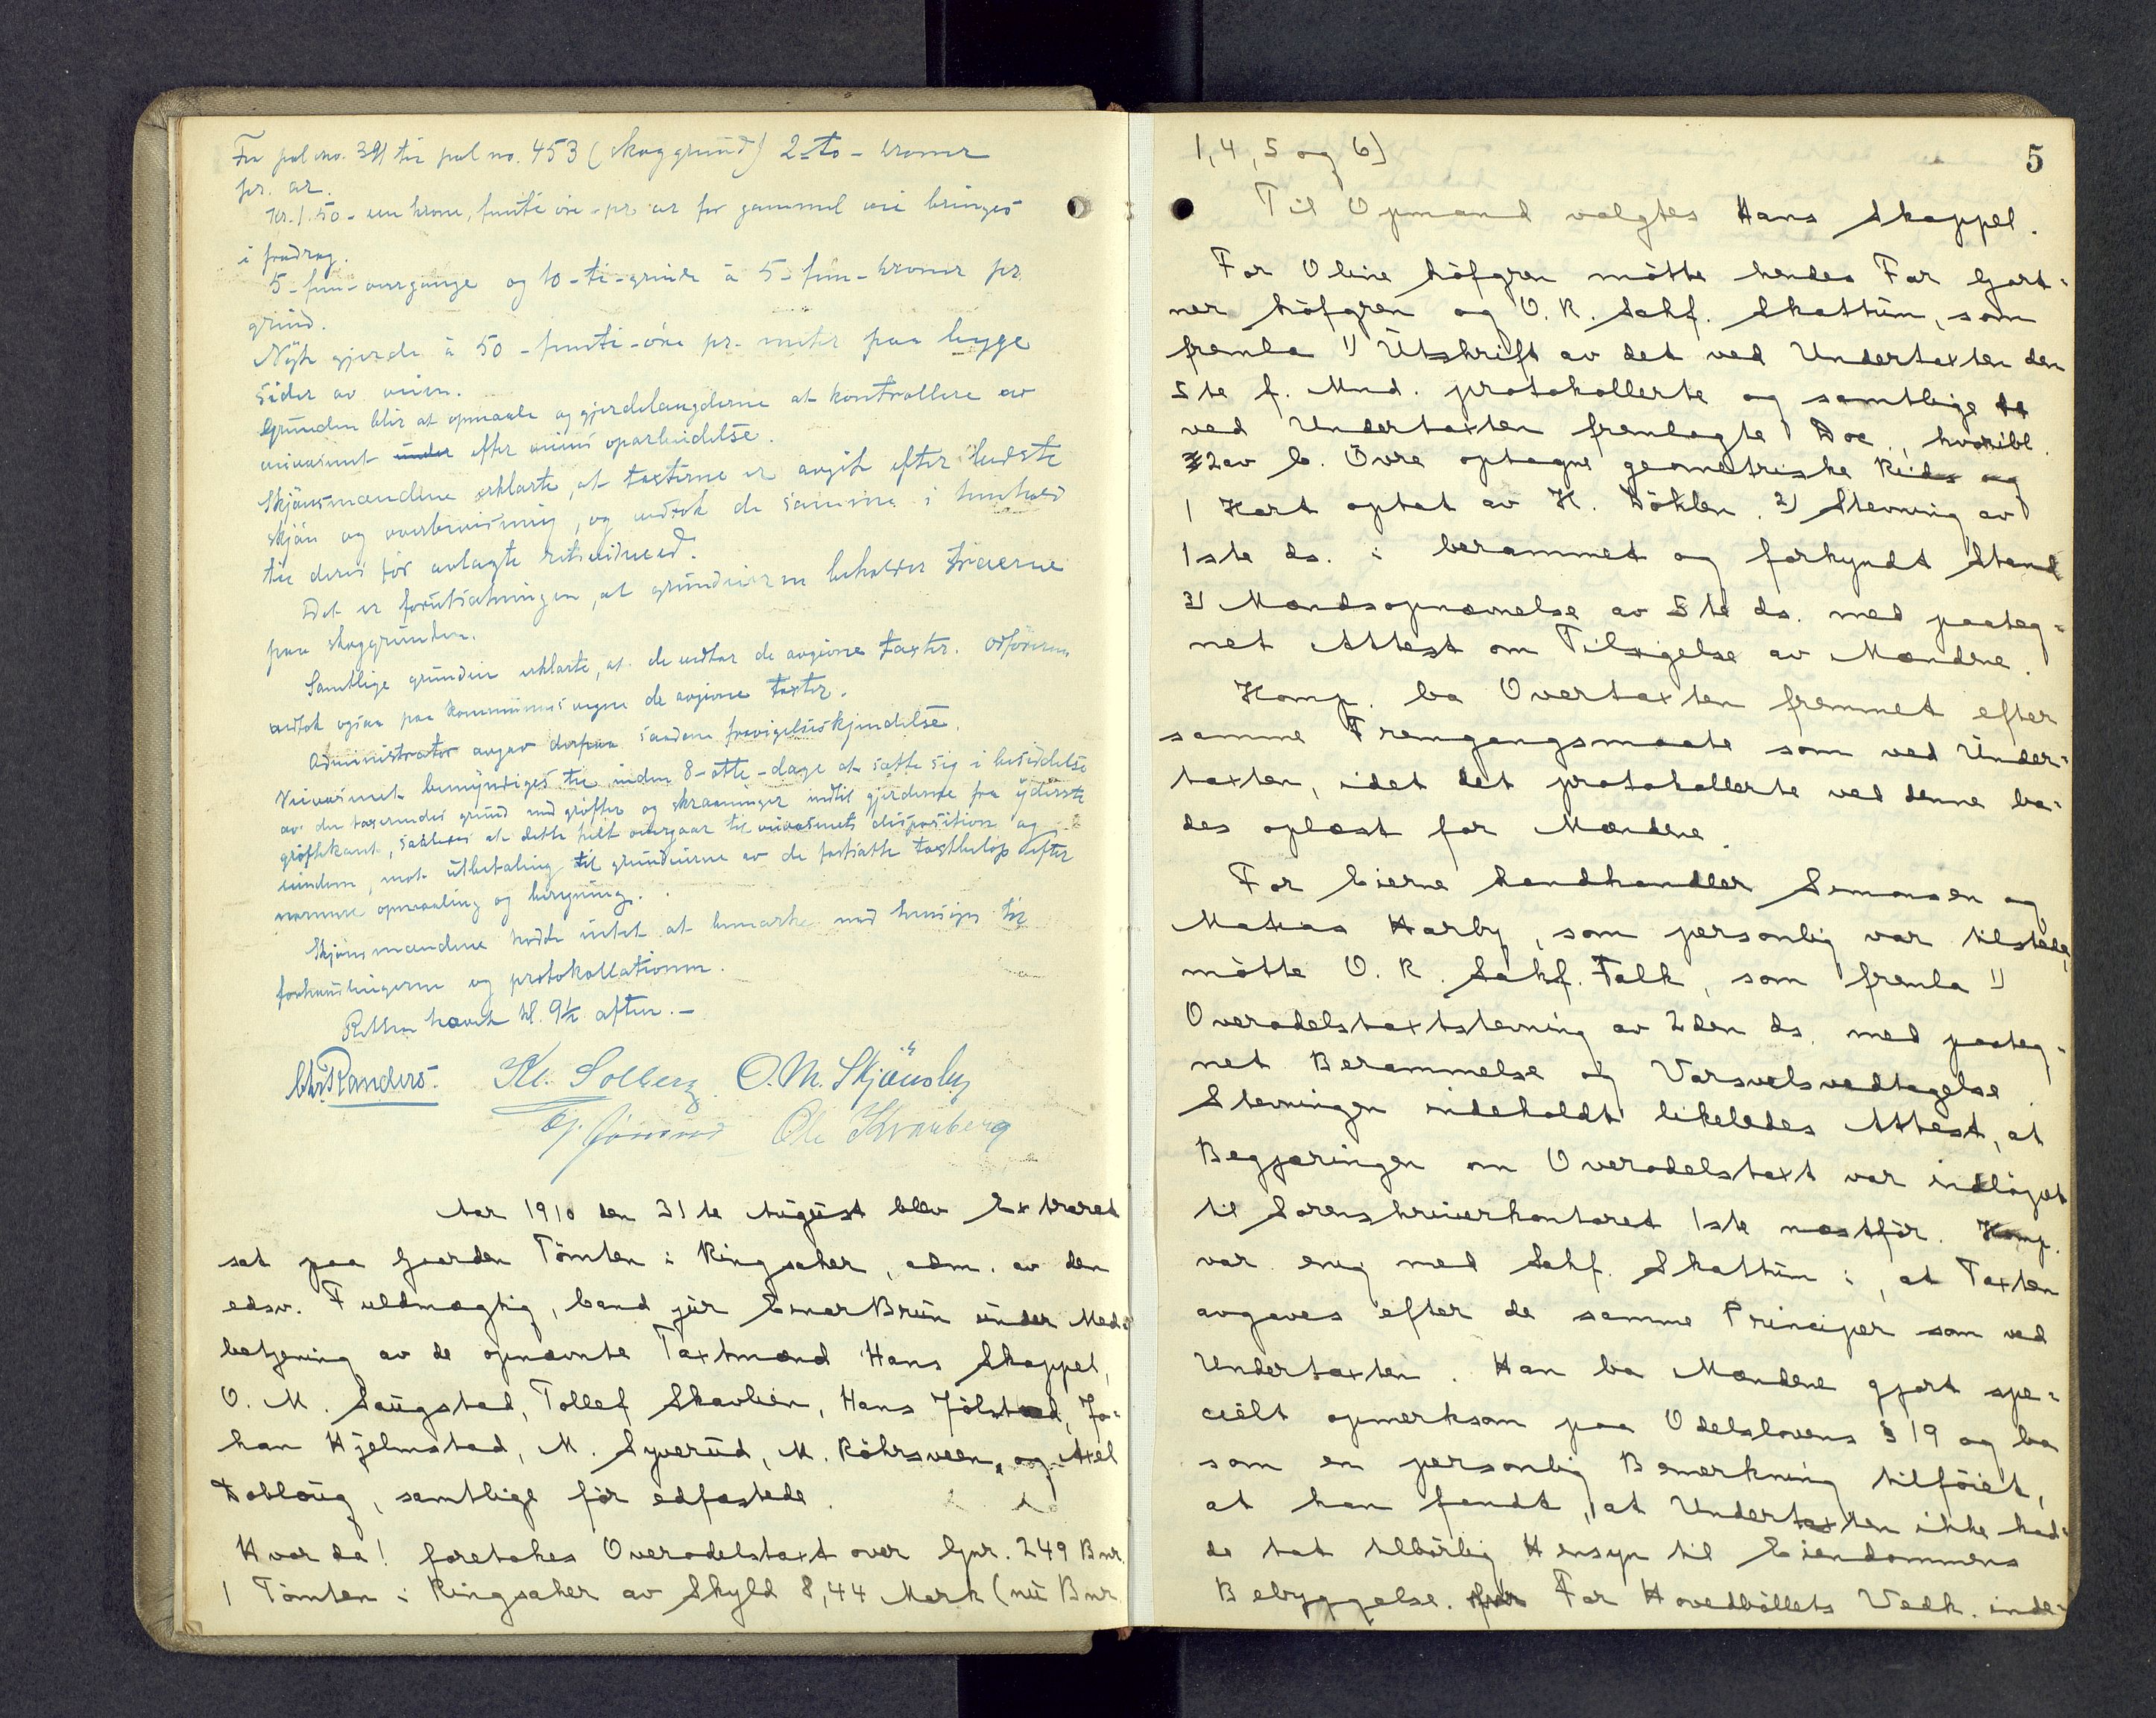 Fra pæl no. 391 til pæl no. 453 (skoggrund) 2-to-kroner
pr. ar.
Kr. 1.50 - een krone, femti øre - pr ar for gammel vei bringes
i fradrag.
5-fem-overgange og 10-ti-grinde à 5-fem-kroner pr.
grind.
Nyt gjerde à 50-femti-øre pr. meter paa begge
sider av veien.
Grunden blir at opmaale og gjerdelængderne at kontrollere av
veivæsenet efter veiens oparbeidelse.
Skjønsmændene erklærte, at taxterne er avgit efter bedste
skjøn og overbevisning, og vedtok de samme i henhold
til deres før avlagte rets eid.
Det er forutsætningen, at grundeierne beholder trærne
paa skoggrunden.
Samtlige grundeiere erklærte, at de vedtar de avgivne taxter. Ordføreren
vedtok ogsaa paa kommunens vegne de avgivne taxter.
Administrator avgav derpaa saadan fravigelseskjendelse.
Veivæsenet bemyndiges til inden 8-otte-dage at sætte sig i besiddelse
av den taxerendes grund med grøfter og skraaninger indtil gjerderne fra yderste
grøftekant, saaledes at dette helt overgaar til veivæsenets disposition og
eiendom, mot utbetaling til grundeierne av de fastsatte taxtbeløp efter
nærmere opmaaling og beregning.
Skjønsmændene hadde intet at bemærke med hensyn til
forhandlingerne og protokollationen.
Retten hævet kl. 9½ aften. -
Chr. Randers. Kl. Solberg. O. M. Skjønsby
Ole Kvarberg
Aar 1910 den 31te August blev Extraret
sat paa Gaarden Tömten i Ringsaker, adm. av den
edsv. Fuldmægtig, cand jur Einar Brun under Med-
betjening av de opnævnte Taxtmænd Hans Skappel,
O. M. Saugstad, Tollef Skavlien, Hans Jölstad, Jo-
han Hjelmstad, M. Syverud, M. Röhrsveen, og Axel
Dobloug, samtlige för edfæstede.
Hvor da! foretokes Overodelstaxt over Gnr. 249 Bnr.
1 Tömten i Ringsaker av Skyld 8,44 Mark (nu Bnr.
5
1, 4, 5 og 6)
Til Opmand valgtes Hans Skappel.
For Oline Löfgren mötte hendes Far Gart-
ner Löfgren og O. R. Sakf. Skattum, som
fremla 1) Utskrift av det ved Undertaxten den
5te f. Mnd. protokollerte og samtlige
ved Undertaxten fremlagte Doc., hvoribl.
2 av C. Övre optagne geometriske Rids og
1 Kart optat av H. Döhlen. 2) Stevning av
1ste ds. i berammet og forkyndt Stand
3) Mandsopnævnelse av 5te ds. med paateg-
net Attest om Tilsigelse av Mændene.
Komp. ba Overtaxten fremmet efter
samme Fremgangsmaate som ved Under-
taxten, idet det protokollerte ved denne ba-
des oplæst for Mændene.
For Eierne Landhandler Simonsen og
Matias Harby, som personlig var tilstede,
mötte O. R. Sakf. Falk, som fremla 1)
Overodelstaxtstevning av 2den ds. med paateg-
net Berammelse og Varselsvedtagelse.
Stevningen indeholdt likeledes Attest, at
Begjæringen om Overodelstaxt var indlöpet
til Sorenskriverkontoret 1ste næstför. Komp.
var enig med Sakf. Skattum i, at Taxten
avgaves efter de samme Principer som ved
Undertaxten. Han ba Mændene gjort spe-
cielt opmerksom paa Odelslovens § 19 og ba
som en personlig Bemerkning tilföiet,
at han fandt, at Undertaxten ikke had-
de tat tilbörlig Hensyn til Eiendommens
Bebyggelse. For Hovedbölets Vedk. inde-